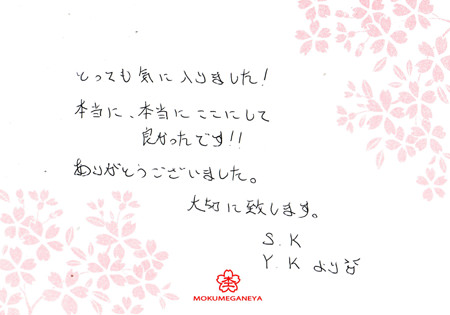 とっても気に入りました!
本当に、本当にここにして
良かったです!!
ありがとうございました。
大切に致します。
S.K
Y.K より
MOKUMEGANEYA